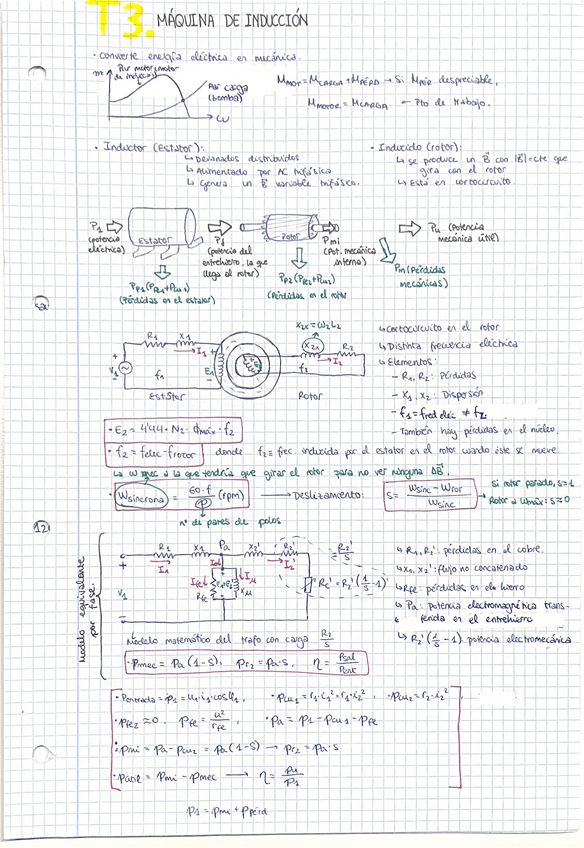 T3. MÁQUINA DE INDUCCIÓN
· Convierte energía eléctrica en mecánica.
m
Par motor (motor de inducción)
Par carga (bomba)
ω
Mmot = Mcarga + Mpérd → Si Mpér despreciable,
Mmotor = Mcarga — Pto de trabajo.
· Inductor (Estator):
↳ Devanados distribuidos
↳ Alimentado por AC trifásica
↳ Genera un B⃗ variable trifásico.
· Inducido (rotor):
↳ se produce un B⃗ con |B⃗|=cte que
gira con el rotor
↳ Está en cortocircuito.
P1 (potencia eléctrica)
Estator
Pa (potencia del entrehierro, la que llega al rotor)
Rotor
Pmi (Pot. mecánica interna)
Pu (Potencia mecánica útil)
Pp1 (PFe1+Pcu1) (Pérdidas en el estator)
Pp2 (PFe2+Pcu2) (Pérdidas en el rotor)
Pm (Pérdidas mecánicas)
R1 X1 I1 V1 f1 E1
Estator
X2x = ω2L2
X2x R2 f2 I2
Rotor
↳ Cortocircuito en el rotor
↳ Distinta frecuencia eléctrica
↳ Elementos:
– R1, R2: Pérdidas
– X1, X2: Dispersión
– f1 = fred elec ≠ f2.
– También hay pérdidas en el núcleo.
· E2 = 4'44 · N2 · ϕmáx · f2
· f2 = felec - frotor
donde f2 = frec. inducida por el estator en el rotor cuando éste se mueve
La ω mec a la que tendría que girar el rotor para no ver ninguna ΔB⃗.
· Wsíncrona = 60·f / p (rpm)
nº de pares de polos
→ Deslizamiento:
S = Wsinc - Wrot / Wsinc
→ Si rotor parado, s=1
Rotor a ωmáx: s≈0
Modelo equivalente por fase.
R1 X1 Pa X2' R2' = R2'/S
I1 I0 I2' IFe Iμ E1=E2' RFe Xμ V1
Rc' = R2'(1/S - 1)
Modelo matemático del trafo con carga R2/S
· Pmec = Pa(1-S), Pr2 = Pa·S, η = Psal/Pent
↳ R1, R2': pérdidas en el cobre.
↳ X1, X2': flujo no concatenado
↳ RFe: pérdidas en el hierro
↳ Pa: Potencia electromagnética trans-
ferida en el entrehierro
↳ R2'(1/S - 1): potencia electromecánica
· Pentrada = P1 = u1·i1·cosφ1, · Pcu1 = r1·i1² = r1·i2², · Pcu2 = r2·i2²
· PFe2 ≈ 0, PFe = u²/rFe · Pa = P1 - Pcu1 - PFe
· Pmi = Pa - Pcu2 = Pa(1-S) → Pr2 = Pa·S
· Pútil = Pmi - Pmec → η = Pu/P1
P1 = Pmi + Ppérd